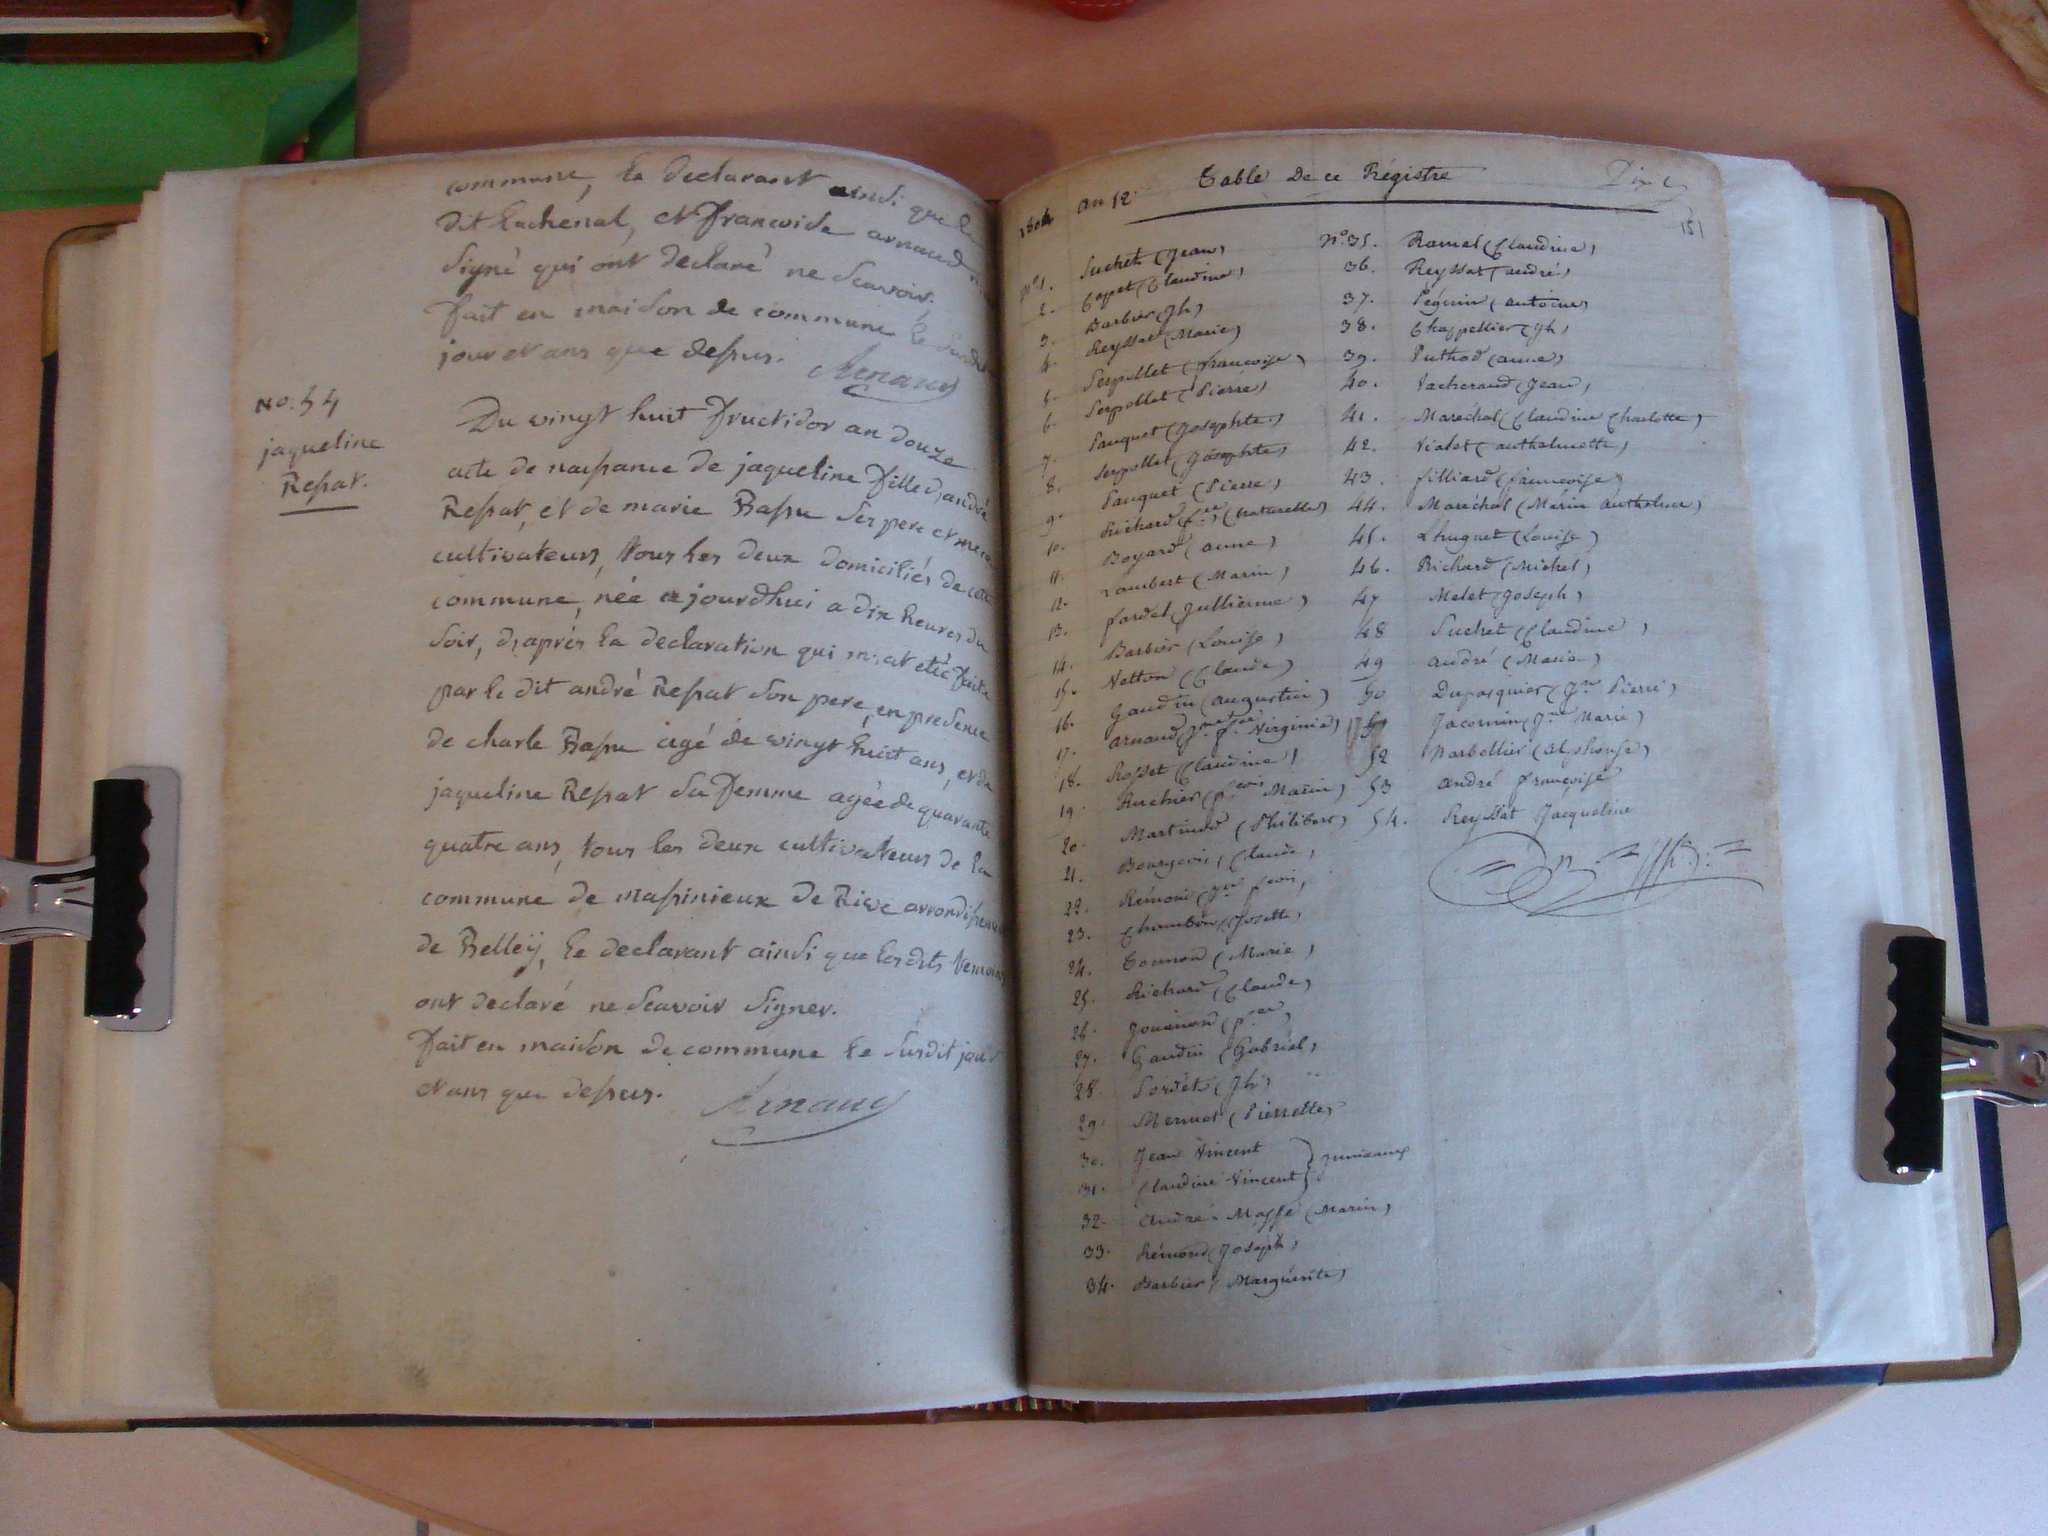 commune, le declarant ainsi que
dit Lachenal, et Francoise arnaud
signé qui ont declaré ne scavoir.
fait en maison de commune le susdit
jour et ans que dessus. Arnaud
No. 54
jaqueline
Ressat.
Du vingt huit fructidor an douze
acte de naissance de jaqueline fille d'andré
Ressat, et de marie Bassu ses pere et mere
cultivateurs, tous les deux domiciliés de cette
commune, née ajourdhui a dix heures du
soir, d'après la declaration qui m'at etéé faite
par le dit andré Ressat son pere, en presence
de charle Bassu agé de vingt huit ans, et de
jaqueline Ressat sa femme agée de quarante
quatre ans, tous les deux cultivateurs de la
commune de massinieux de Rive arrondissement
de Belleÿ, le declarant ainsi que lesdits temoins
ont declaré ne scavoir signer.
fait en maison de commune le susdit jour
et ans que dessus. Arnaud
1804 an 12. Table De ce Régistre
151
No 1. Suchet (Jean)
2. Capet (Claudine)
3. Barbier (Jh)
4. Reyssat (Marie)
5. Serpollet (françoise)
6. Serpollet (Pierre)
7. Pauquet (Josephte)
8. Serpollet (Josephte)
9. Pauquet (Pierre)
10. Richard (naturelle)
11. Boyard (anne)
12. Lambert (Marin)
13. Pardel (Jullienne)
14. Barbier (Louise)
15. Netton (Claude)
16. Gaudin (augustin)
17. Arnaud Virginie)
18. Rosset (Claudine)
19. Ruchier (fcois Marin)
20. Martinod (Philibert)
21. Bourgeois, Claude,
22. Rémond (Jn fcois,
23. Chambon (Josette,
24. Tonnod (Marie)
25. Richard (Claude)
26.
27. Gaudin (Gabriel)
28. Pordet (Jh)
29. Mermet (Pierrette)
30. Jean Vincent
31. Claudine Vincent } jumeaux
32. André-Masse (Marin)
33. Rémond (Joseph)
34. Barbier (Marguerite)
No 35. Ramel (Claudine)
36. Reyssat (andré)
37. Péguin (antoine)
38. Chappellier (Jh)
39. Puthod (anne)
40. Vacheraud (Jean)
41. Maréchal (Claudine Charlotte)
42. Violet (anthelmette)
43. filliard (françoise)
44. Maréchal (Marin Anthelme)
45. Lhuguet (Louise)
46. Richard (Michel)
47 Melet (Joseph)
48 Suchet (Claudine)
49 André (Marie)
50 Dupasquier (Jn Pierre)
51 Jacomin (Jn Marie)
52 Barbollier (Alphonse)
53 André françoise
54. Reyssat Jacqueline